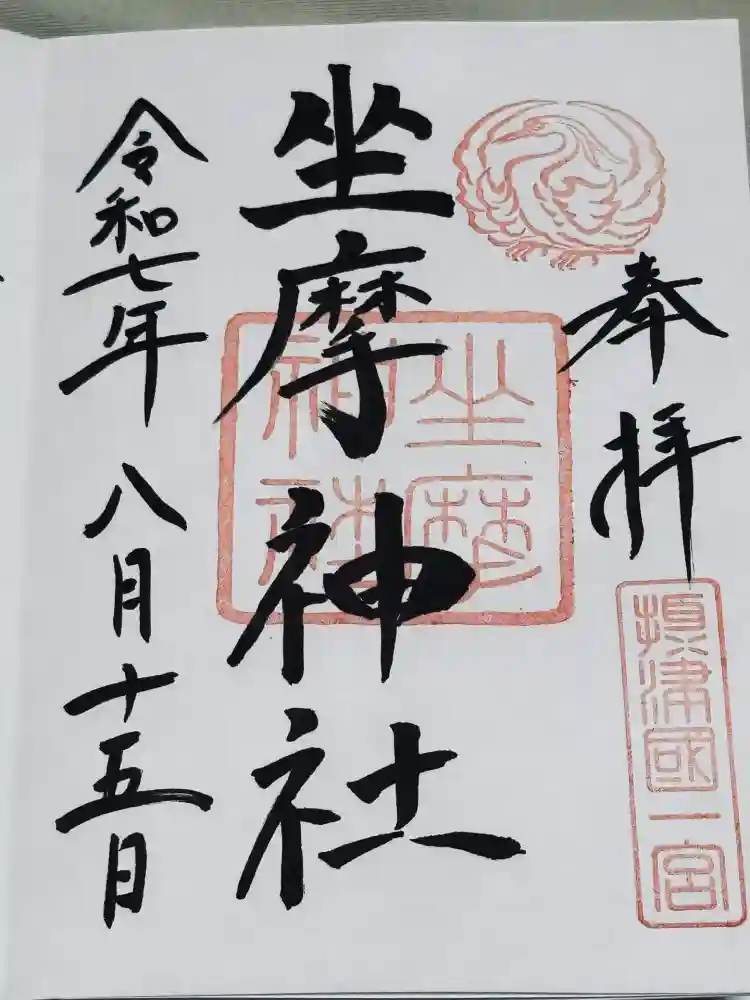 奉拝
摂津國一宮
坐摩神社
坐摩
神社
令和七年八月十五日